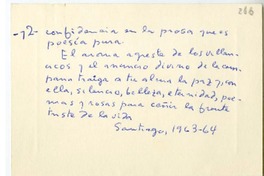 286
-12- confidencia en la prosa que es
poesía pura.
El aroma agreste de los villan-
cicos y el anuncio divino de la cam-
pana traiga a tu alma la paz y con
ella, silencio, belleza, eternidad, poe-
mas y rosas para ceñir la frente
triste de la vida
Santiago, 1963-64